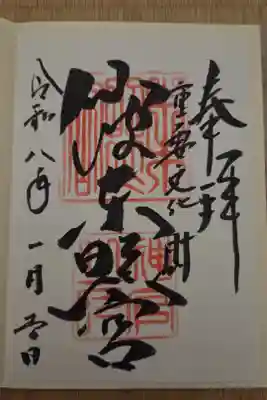 奉拝
重要文化財
仙波東照宮
令和八年一月日